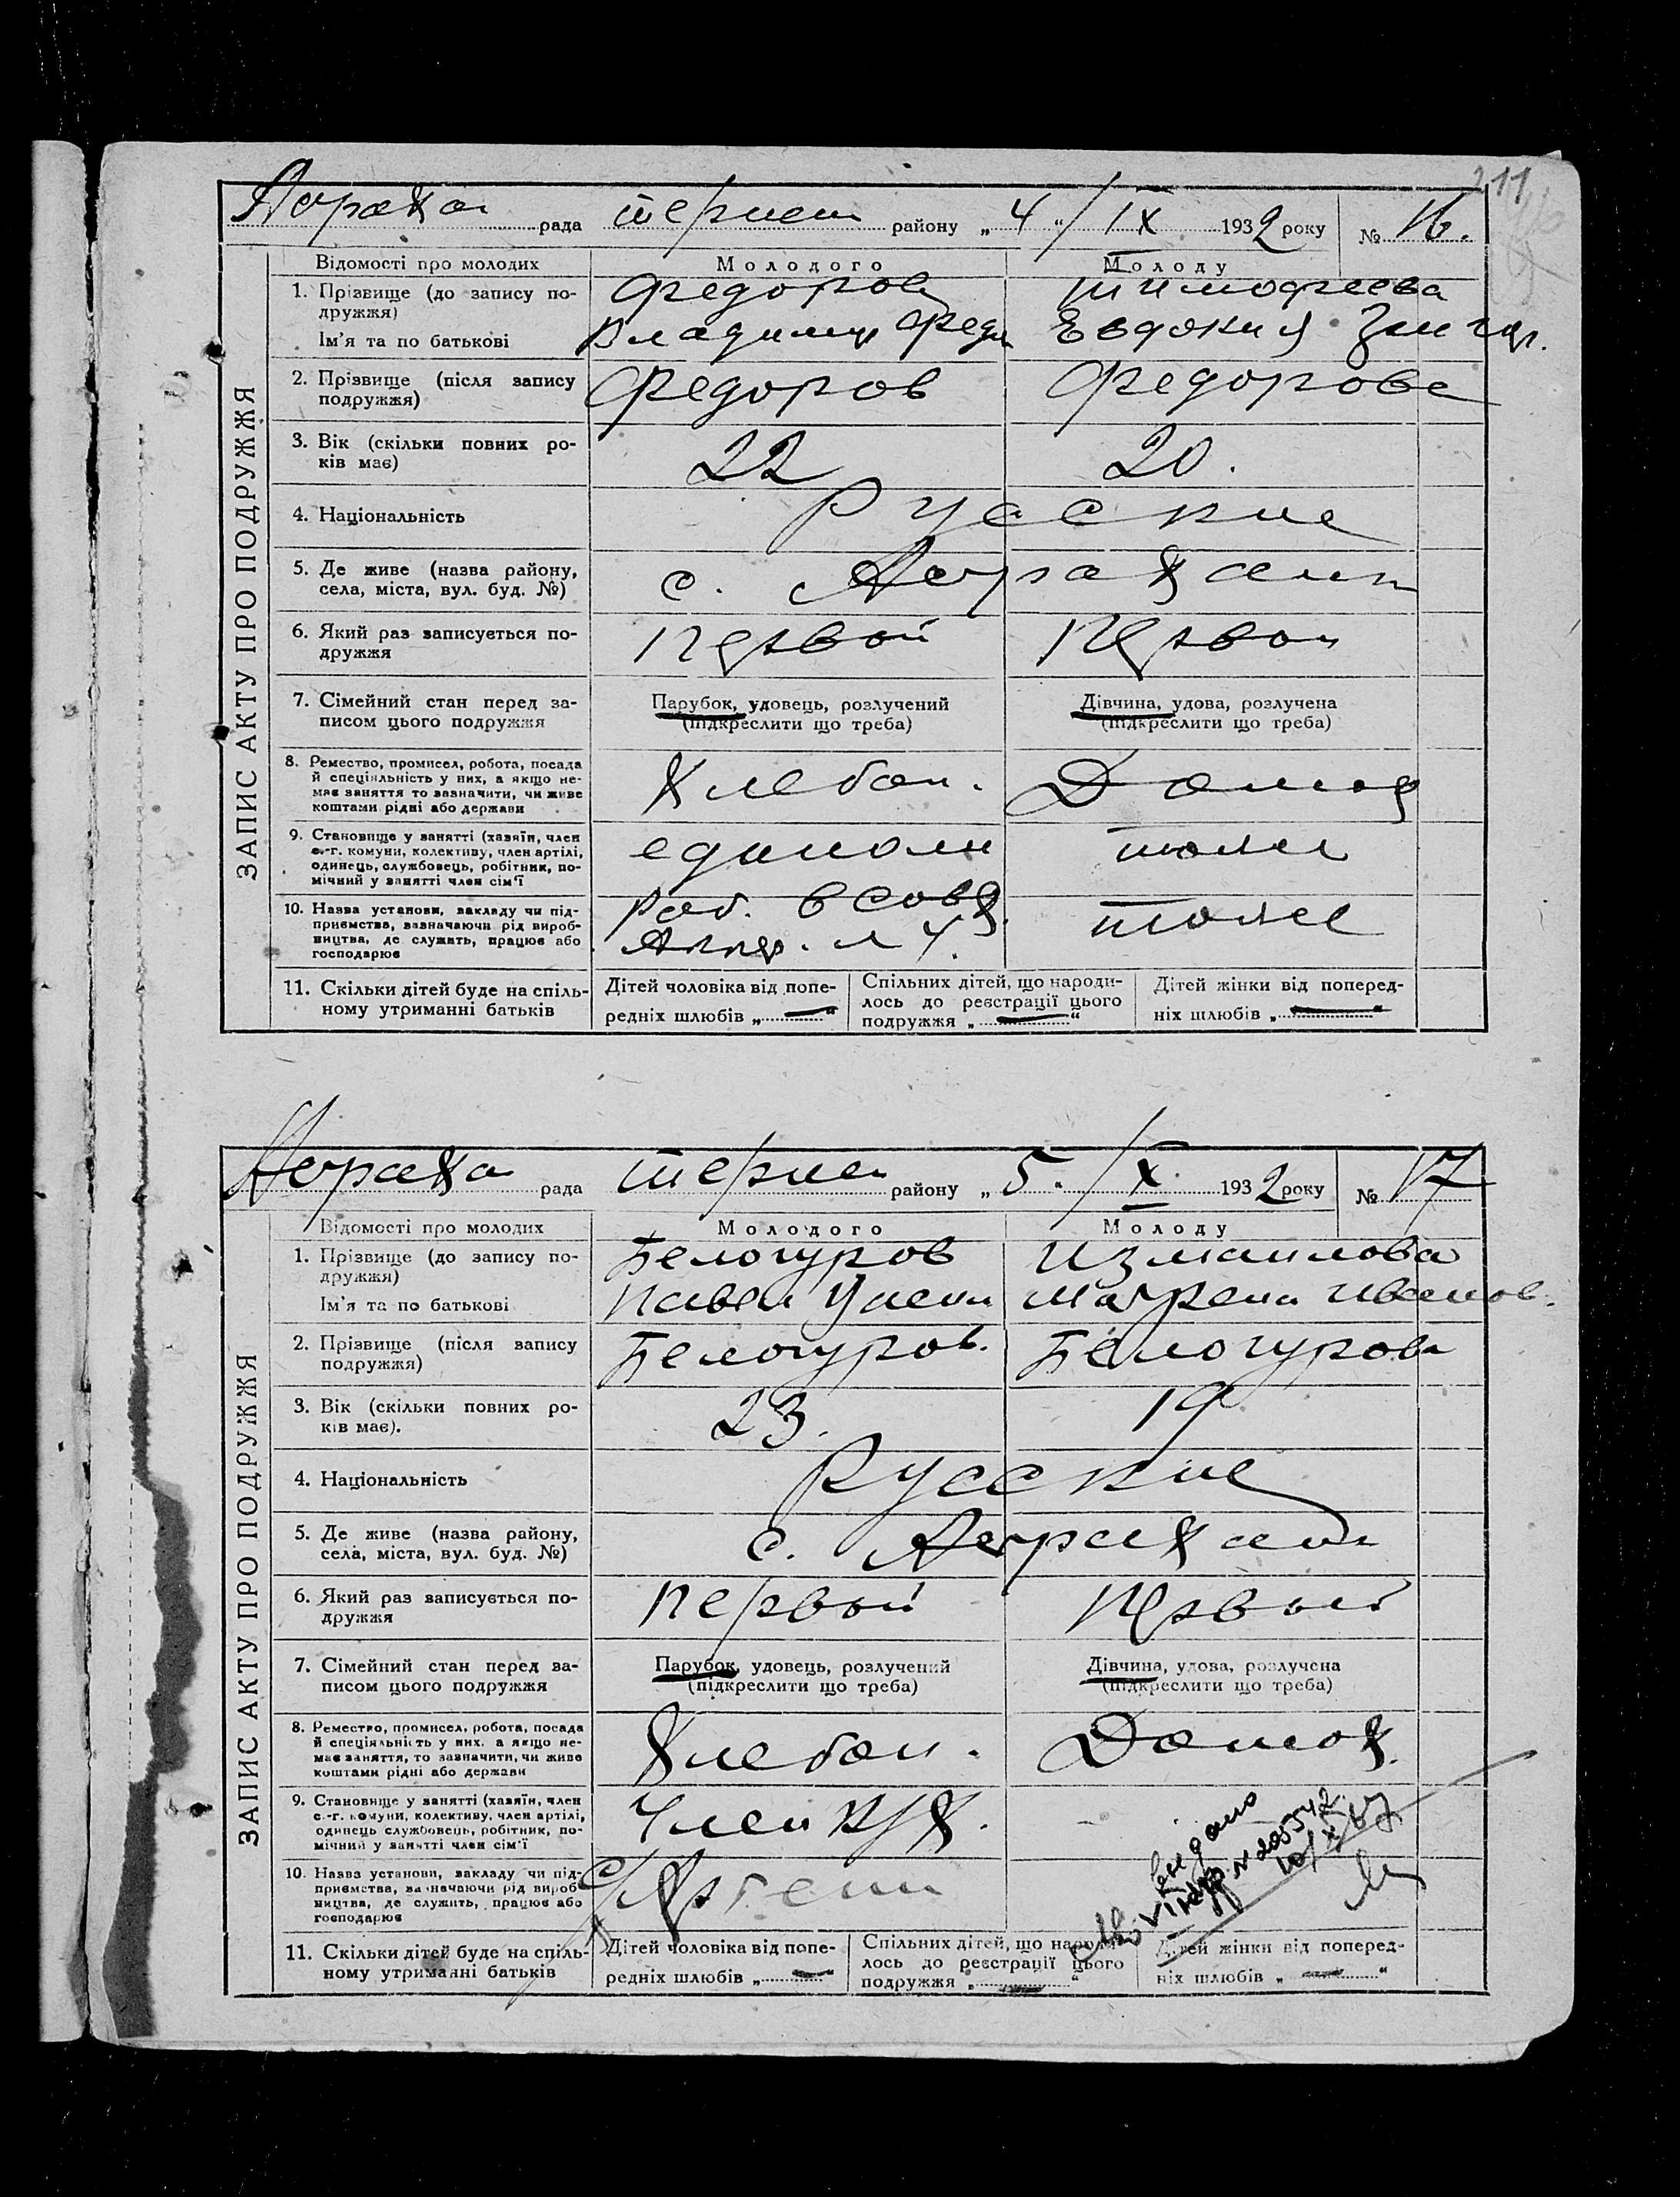 211
Астраха рада терпен району „ 4 “ / IX 1932 року № 16.
ЗАПИС АКТУ ПРО ПОДРУЖЖЯ
Відомості про молодих Молодого Молоду
1. Прізвище (до запису по- Федоров Тимофеева
дружжя)
Ім'я та по батькові Владимир Федор Евдокия
2. Прізвище (після запису Федоров Федорова
подружжя)
3. Вік (скільки повних ро- 22 20.
ків має)
4. Національність Русские
5. Де живе (назва району, с.
села, міста, вул. буд. №)
6. Який раз записується по- Первый Первый
дружжя
7. Сімейний стан перед за- Парубок, удовець, розлучений Дівчина, удова, розлучена
писом цього подружжя (підкреслити що треба) (підкреслити що треба)
8. Ремество, промисел, робота, посада Хлебоп. Домох
й спеціяльність у них, а якщо не-
має заняття то зазначити, чи живе
коштами рідні або держави
9. Становище у занятті (хазяїн, член единоли тоже
с.-г. комуни, колективу, член артілі,
одинець, службовець, робітник, по-
мічний у занятті член сім'ї
10. Назва установи, закладу чи під- Раб. в совх. тоже
приємства, зазначаючи рід вироб-
ництва, де служить, працює або
господарює
11. Скільки дітей буде на спіль- Дітей чоловіка від попе- Спільних дітей, що народи- Дітей жінки від поперед-
ному утриманні батьків редніх шлюбів „ — “ лось до реєстрації цього ніх шлюбів „ — “
подружжя „ — “
Астраха рада терпен району „ 5. / X. 1932 року № 17
ЗАПИС АКТУ ПРО ПОДРУЖЖЯ
Відомості про молодих Молодого Молоду
1. Прізвище (до запису по- Белогуров Измаилова
дружжя)
Ім'я та по батькові Павел Матрена Иванов.
2. Прізвище (після запису Белогуров. Белогурова
подружжя)
3. Вік (скільки повних ро- 23. 19
ків має).
4. Національність Русские
5. Де живе (назва району, с.
села, міста, вул. буд. №)
6. Який раз записується по- первый первый
дружжя
7. Сімейний стан перед за- Парубок, удовець, розлучений Дівчина, удова, розлучена
писом цього подружжя (підкреслити що треба) (підкреслити що треба)
8. Ремество, промисел, робота, посада Хлебоп. Домох.
й спеціяльність у них, а якщо не-
має заняття, то зазначити, чи живе
коштами рідні або держави
9. Становище у занятті (хазяїн, член Член
с.-г. комуни, колективу, член артілі,
одинець службовець, робітник, по-
мічний у занятті член сім'ї
10. Назва установи, закладу чи під- с/х Артели
приємства, зазначаючи рід вироб-
ництва, де служить, працює або
господарює
выдано
11. Скільки дітей буде на спіль- Дітей чоловіка від попе- Спільних дітей, що народи- Дітей жінки від поперед-
ному утриманні батьків редніх шлюбів „ — “ лось до реєстрації цього ніх шлюбів „ — “
подружжя „ — “